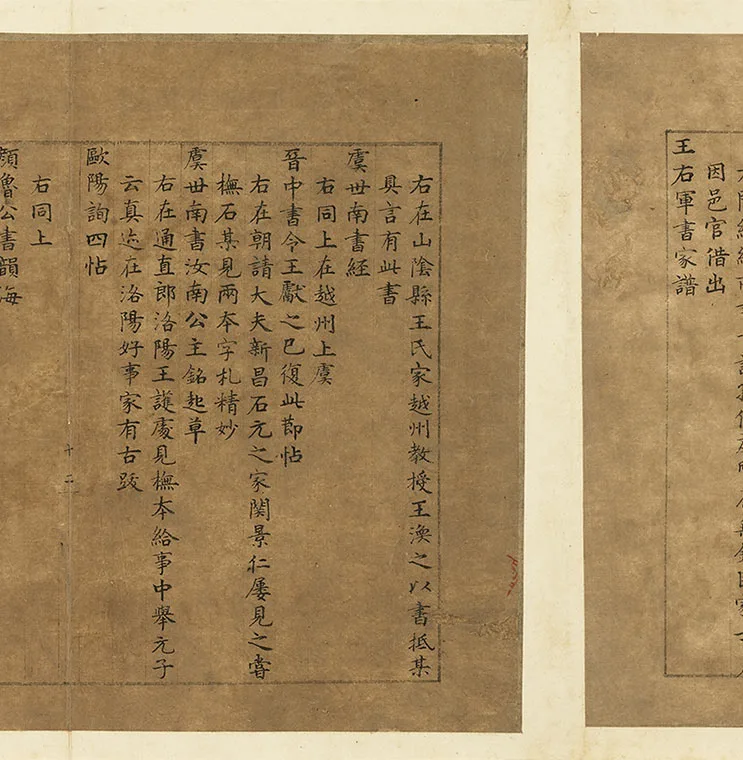 因邑官借出
王右軍書家譜
右在山陰縣王氏家越州教授王渙之以書抵某
具言有此書
虞世南書經
右同上在越州上虞
晉中書令王獻之已復此節帖
右在朝請大夫新昌石元之家関景仁屢見之嘗
橅石某見兩本字札精妙
虞世南書汝南公主銘起草
右在通直郎洛陽王護處見橅本給事中舉元子
云真迹在洛陽好事家有古跋
十二
歐陽詢四帖
右同上
顏魯公書韻海